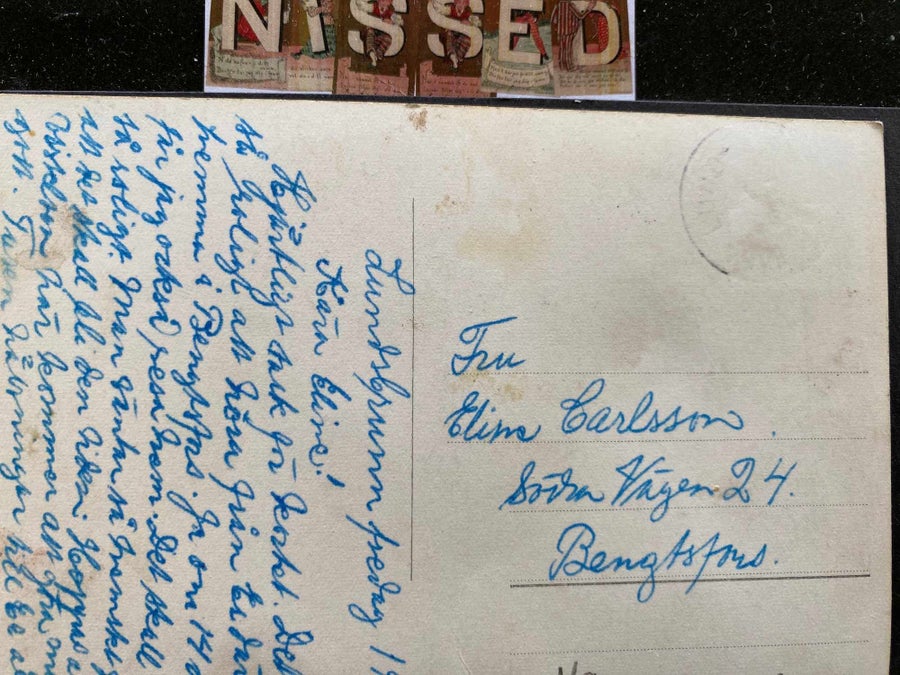 NISSED
Lundsbrunn fredag 1
Kära Eline!
Hjärtligt tack för kortet. Det
så roligt att höra från Er där
hemma i Bengtsfors. Ja om 14 d
får jag också resa hem. Det skall
så roligt. Man väntar så hemskt
att det skall bli den tiden. Hoppas a
vistelsen här kommer att göra mi
gott. Tusen hälsningar till Er a
Fru
Eline Carlsson.
Södra Vägen 24.
Bengtsfors.